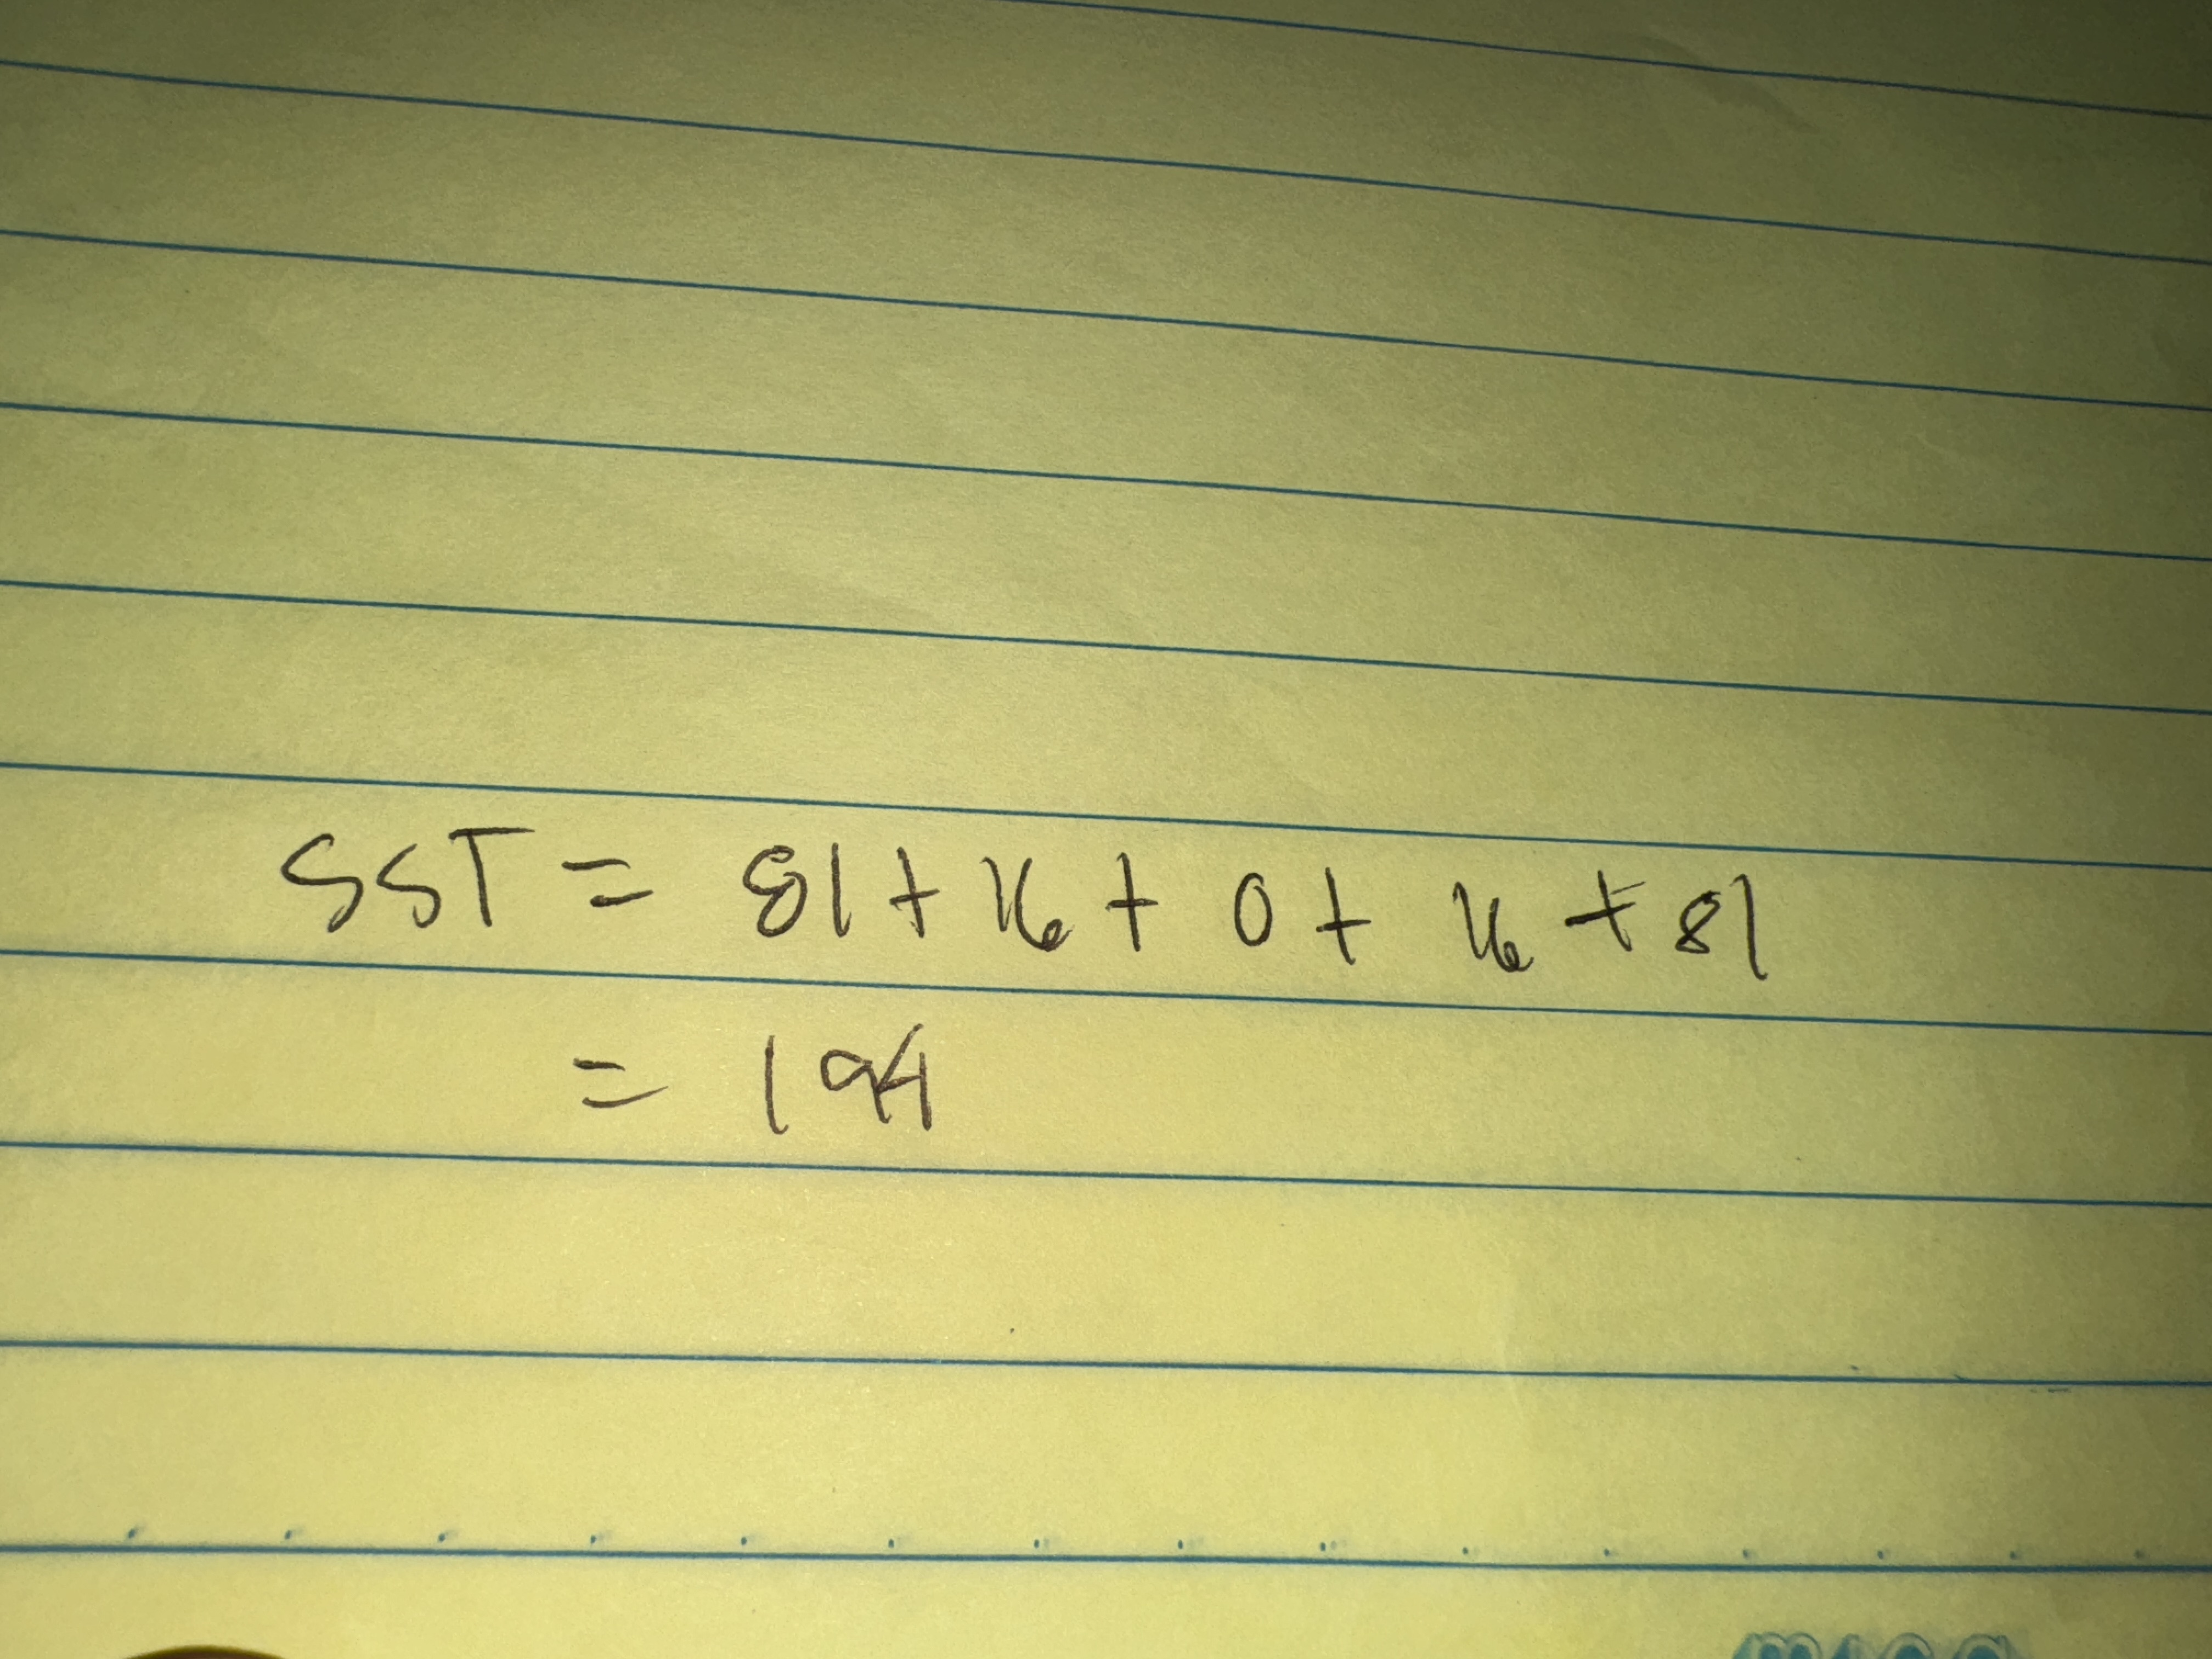 SST = 81 + 16 + 0 + 16 + 81
= 194